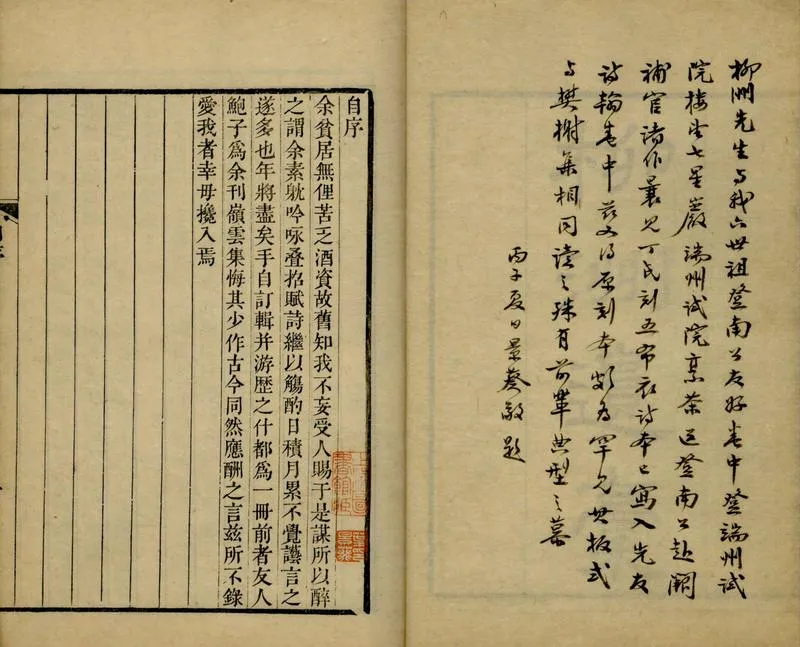 柳洲先生与我六世祖登南公友好卷中登端州試
院楼望七星巖端州試院烹茶送登南公赴闕
補官諸作曩見丁氏刻五布衣詩本已寫入先友
詩輯卷中兹又得原刻本頗為罕見其板式
与樊榭集相同讀之殊有前輩典型之慕
丙子夏日景葵敬題
自序
余貧居無俚苦乏酒資故舊知我不妄受人賜于是謀所以醉
之謂余素躭吟咏叠招賦詩繼以觴酌日積月累不覺讛言之
遂多也年將盡矣手自訂輯并游歷之什都爲一冊前者友人
鮑子爲余刊嶺雲集悔其少作古今同然應酬之言兹所不錄
愛我者幸毋攙入焉